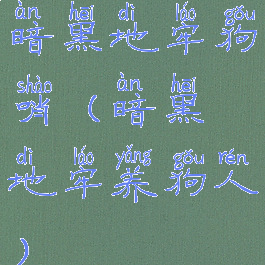 àn hēi dì láo gǒu
暗黑地牢狗
shào àn hēi
哨(暗黑
dì láo yǎng gǒu rén
地牢养狗人
)